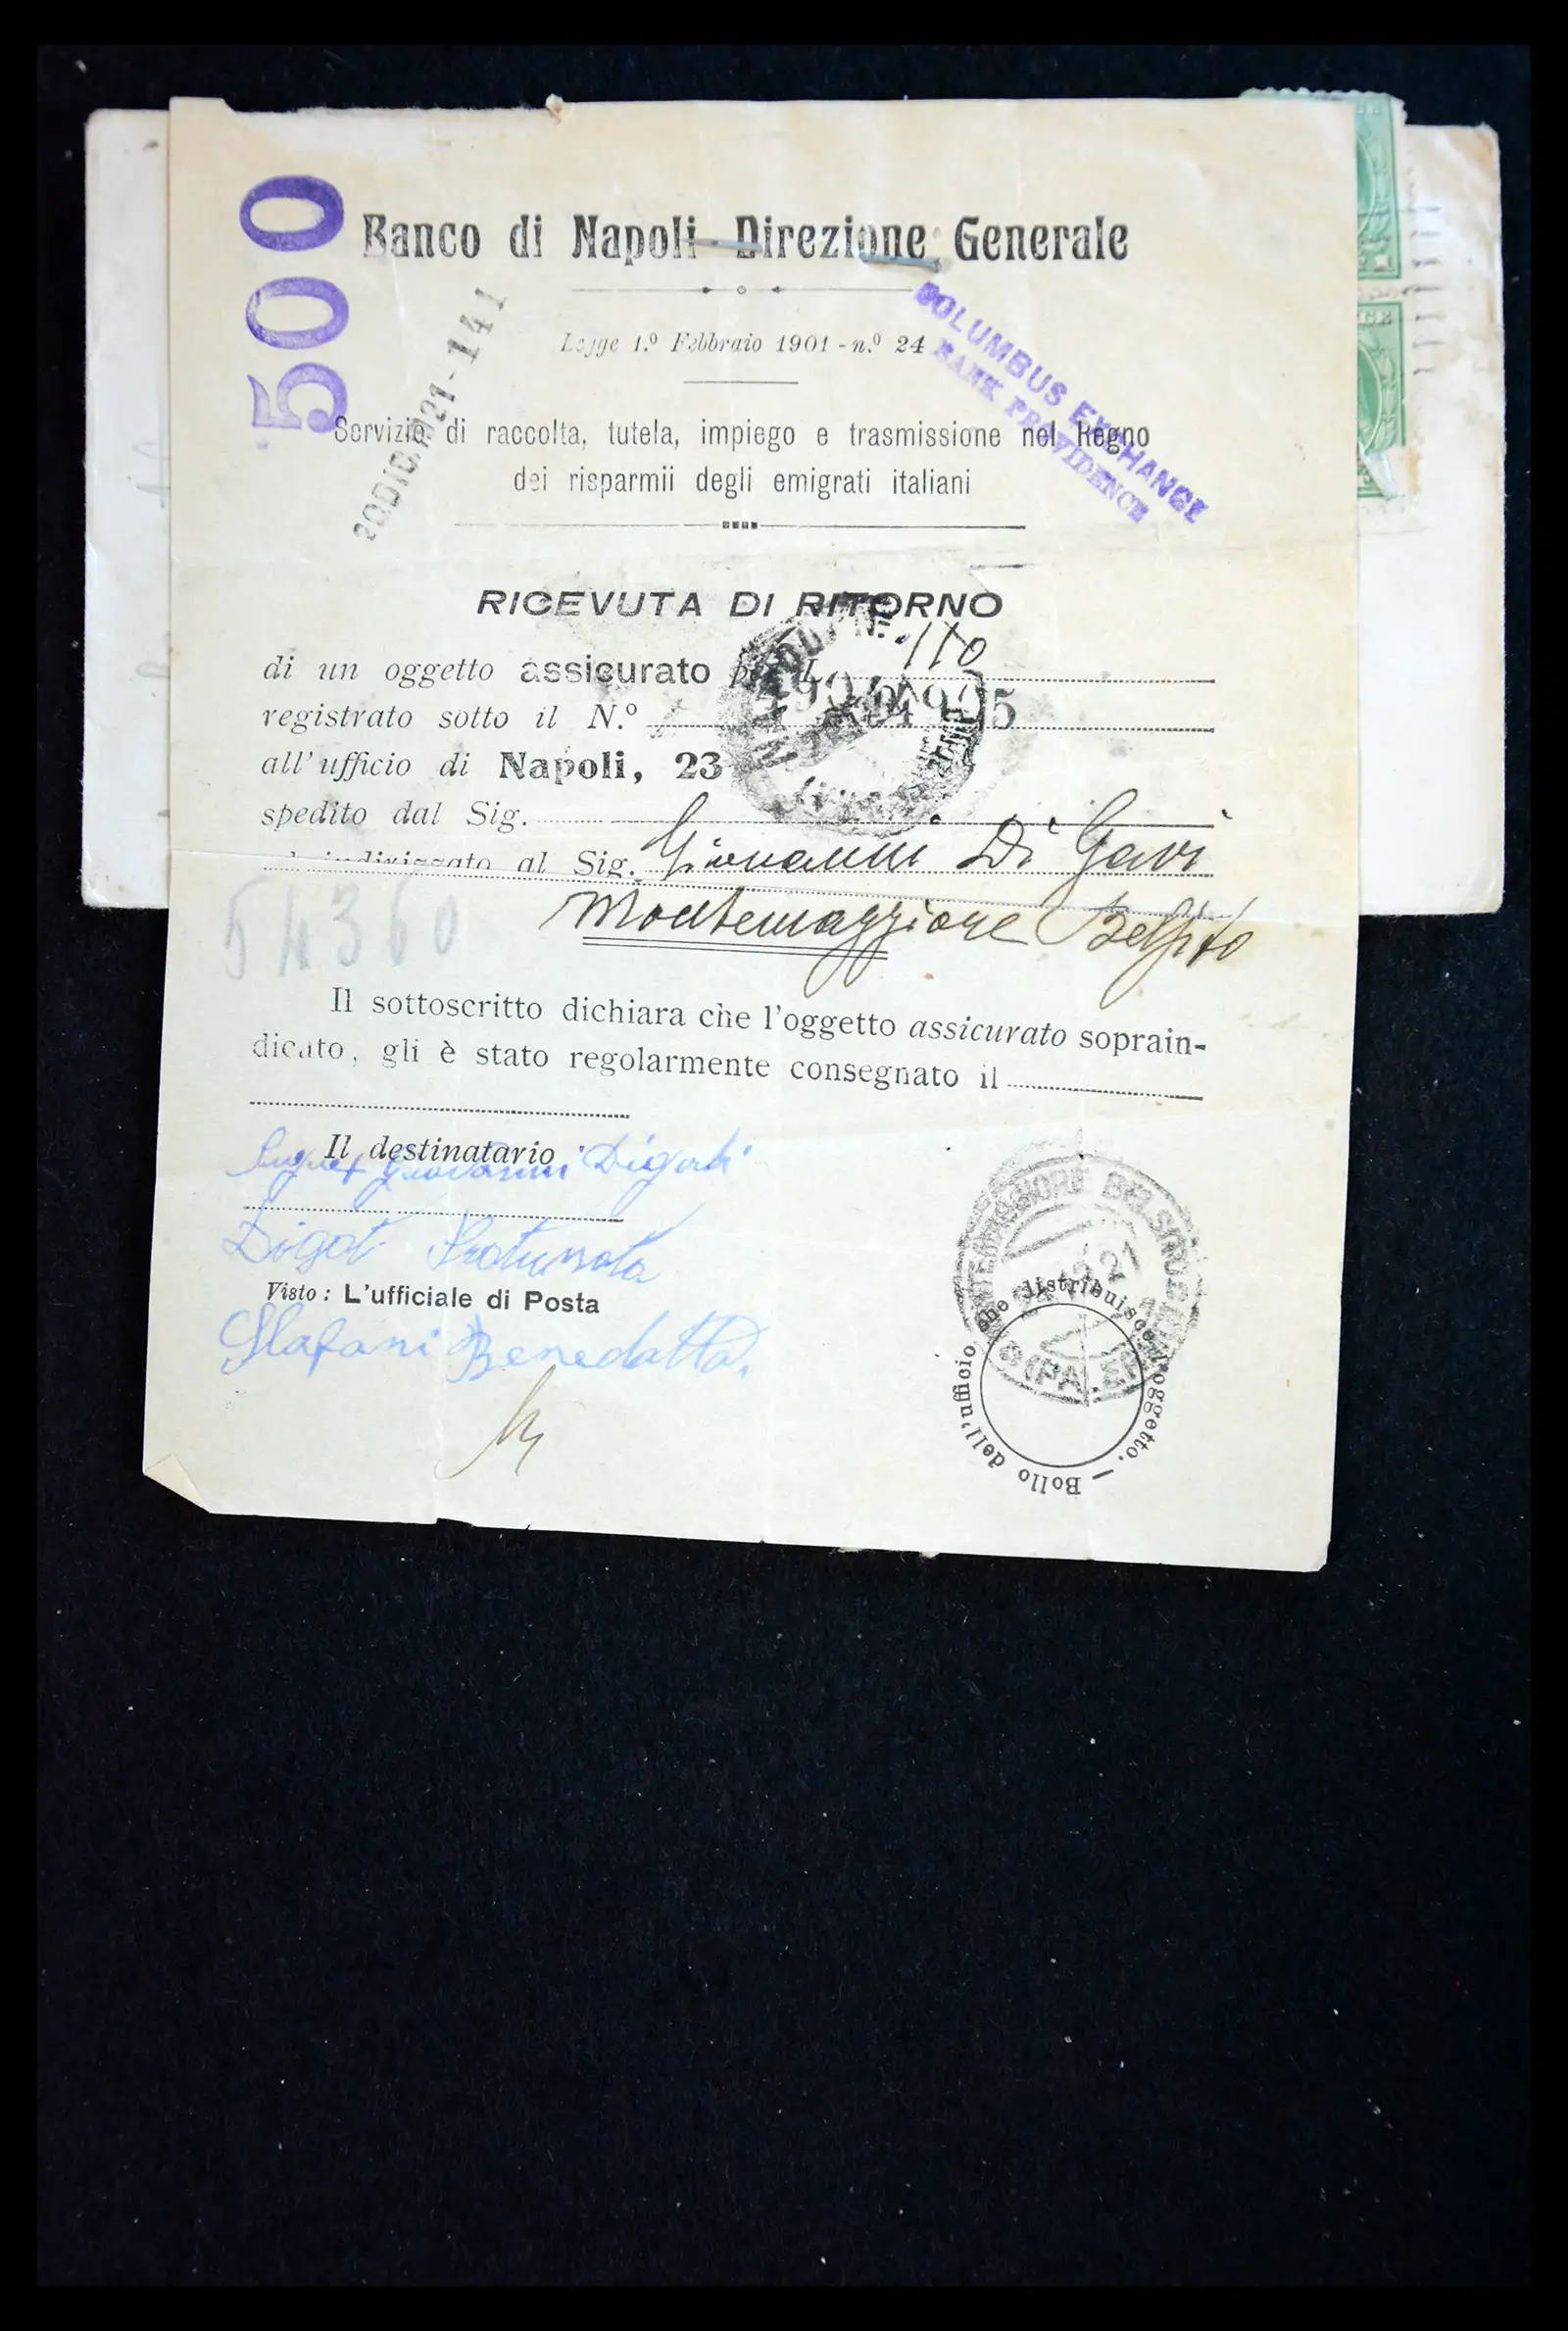 500
Banco di Napoli - Direzione Generale
Legge 1.º Febbraio 1901 - n.º 24
COLUMBUS EXCHANGE
BANK PROVIDENCE
20 DIC. 1921 - 141
Servizio di raccolta, tutela, impiego e trasmissione nel Regno
dei risparmii degli emigrati italiani
RICEVUTA DI RITORNO
di un oggetto assicurato 110
registrato sotto il N.º
all'ufficio di Napoli, 23
spedito dal Sig.
indirizzato al Sig. Giovanni Di Gavi
Montemaggiore Belsito
54360
Il sottoscritto dichiara che l'oggetto assicurato soprain-
dicato, gli è stato regolarmente consegnato il
Il destinatario
Giovanni Digati
Digati
Visto: L'ufficiale di Posta
Slafani Benedatta.
MONTEMAGGIORE BELSITO
21
(PALERMO)
Bollo dell'ufficio che distribuisce l'oggetto. —